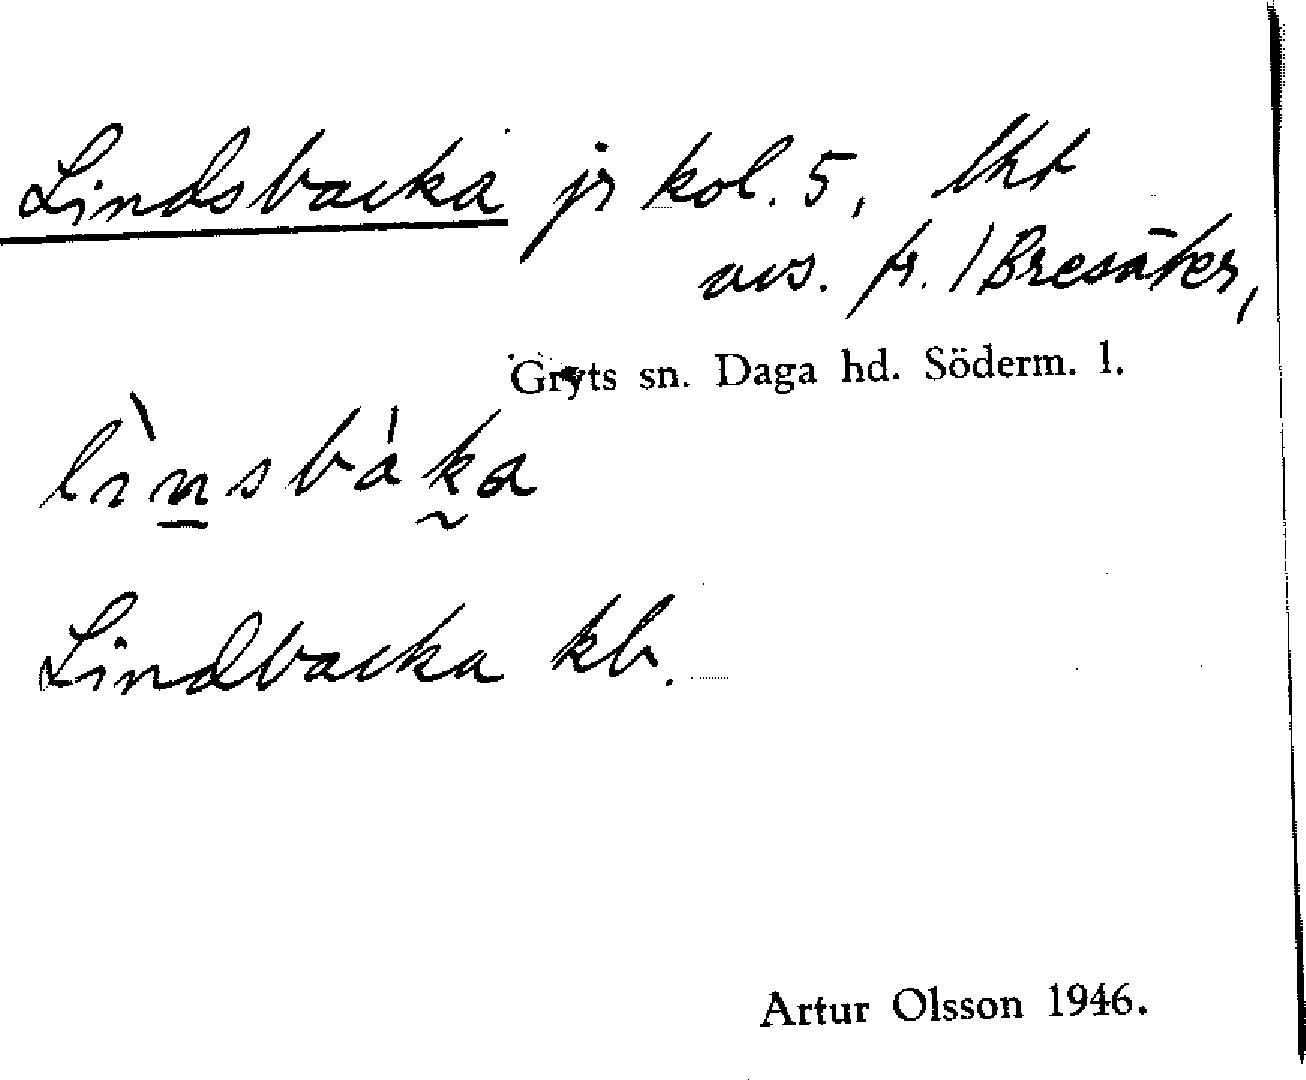 Lindsbacka jr kol. 5, lht
avs. fr. 1 Bresäter,
Gryts sn. Daga hd. Söderm. l.
lìnsbáka
Lindbacka kb.
Artur Olsson 1946.